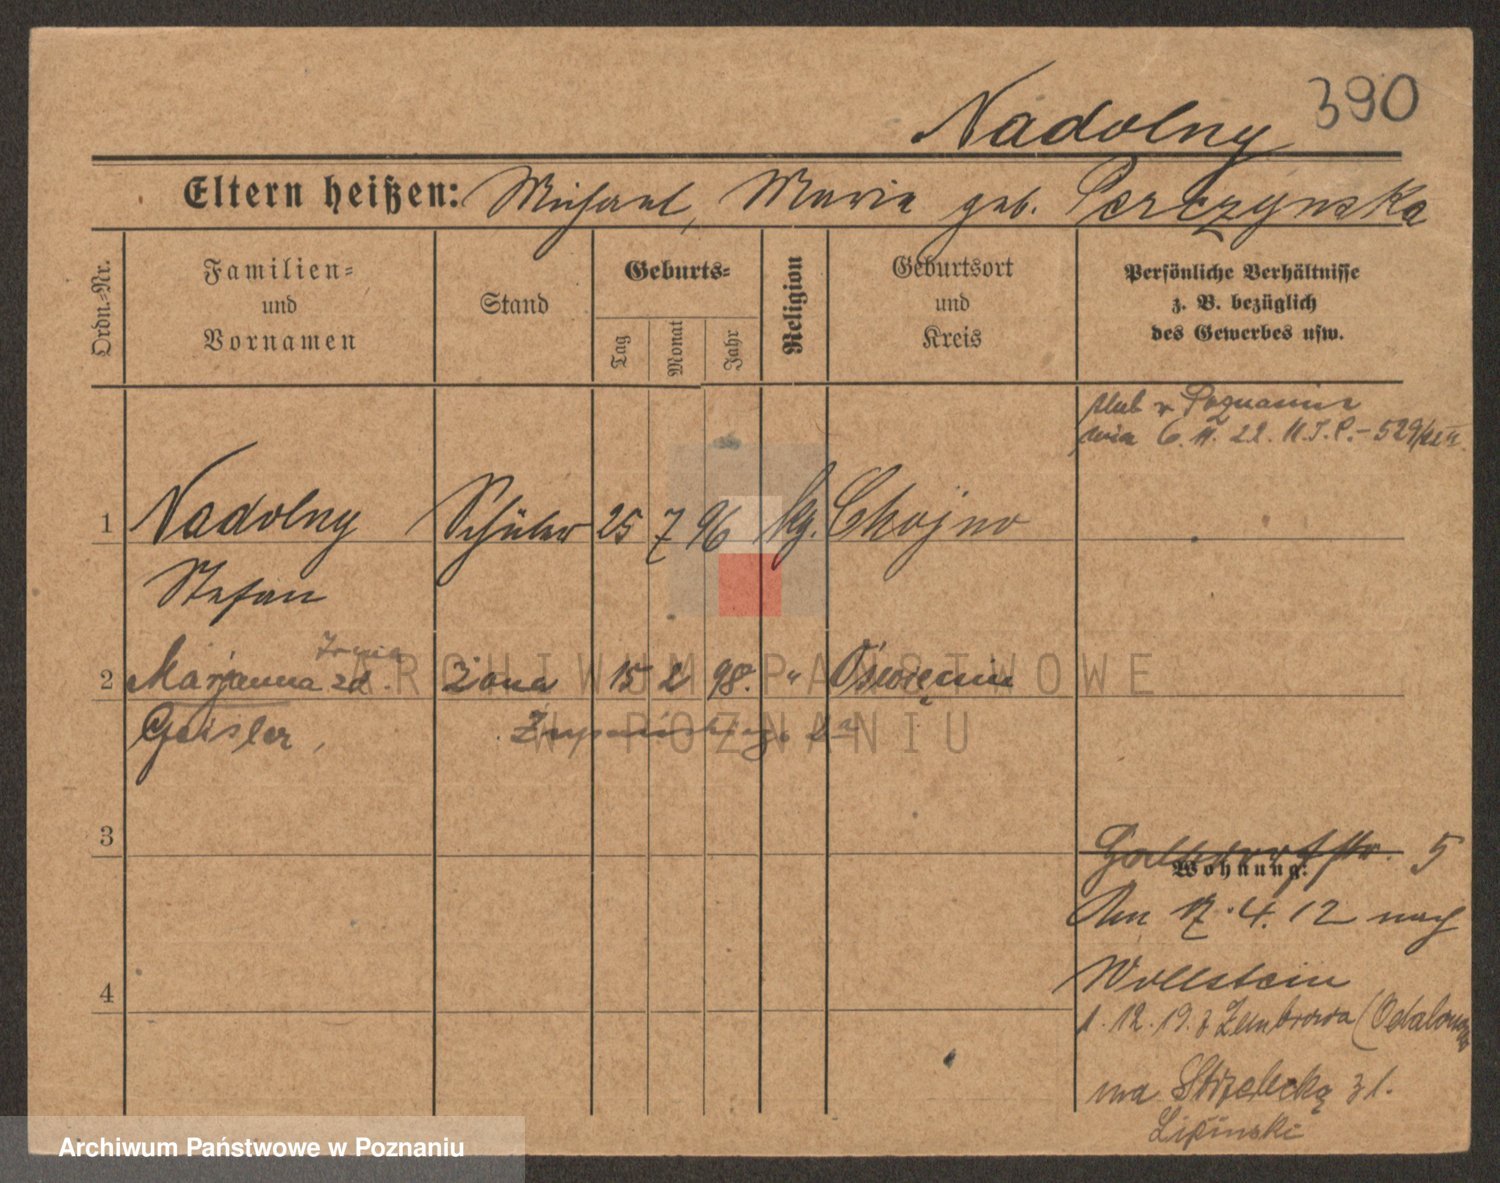 390
Nadolny
Eltern heißen: Michael, Maria geb. Perczynska
Ordn.-Nr.
Familien-
und
Vornamen
Stand
Geburts-
Tag
Monat
Jahr
Religion
Geburtsort
und
Kreis
Persönliche Verhältnisse
z. B. bezüglich
des Gewerbes usw.
ślub w Poznaniu
6. 22. 529/
1 Nadolny Schüler 25 7 96 kg. Chojno
Stefan
Irena
2 Marjanna zd. żona 15 2 98. " Oświęcim
Geisler,
3
5
Wohnung:
Am 17.4.12 nach
Wollstein
4
1.12.19. z Zembrowa (Odalonow
na Strzelecką 31.
Lipinski
ARCHIWUM PAŃSTWOWE
W POZNANIU
Archiwum Państwowe w Poznaniu